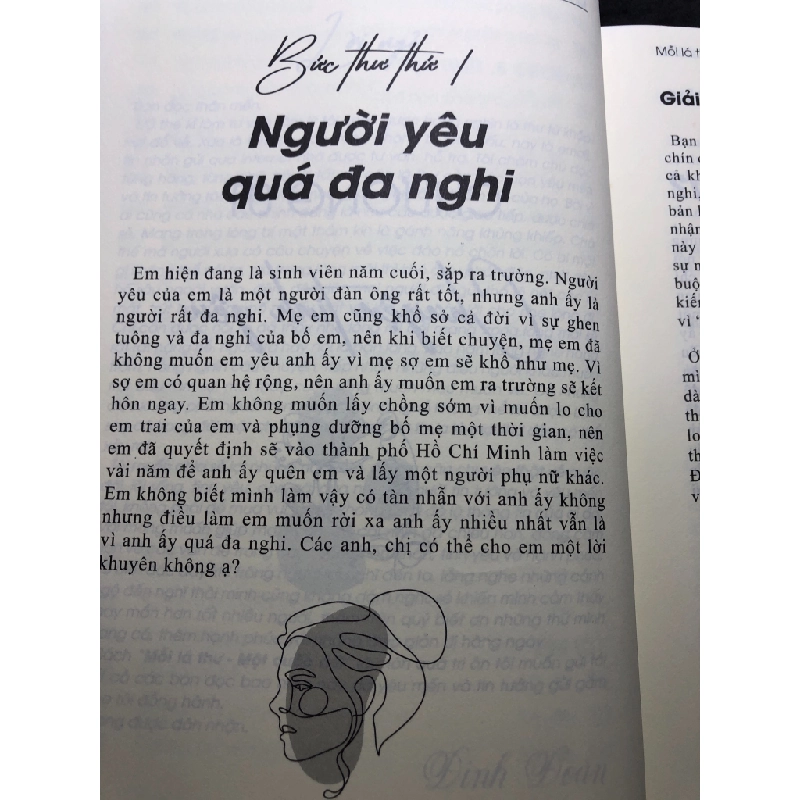 Bức thư thứ 1
Người yêu
quá đa nghi
Em hiện đang là sinh viên năm cuối, sắp ra trường. Người
yêu của em là một người đàn ông rất tốt, nhưng anh ấy là
người rất đa nghi. Mẹ em cũng khổ sở cả đời vì sự ghen
tuông và đa nghi của bố em, nên khi biết chuyện, mẹ em đã
không muốn em yêu anh ấy vì mẹ sợ em sẽ khổ như mẹ. Vì
sợ em có quan hệ rộng, nên anh ấy muốn em ra trường sẽ kết
hôn ngay. Em không muốn lấy chồng sớm vì muốn lo cho
em trai của em và phụng dưỡng bố mẹ một thời gian, nên
em đã quyết định sẽ vào thành phố Hồ Chí Minh làm việc
vài năm để anh ấy quên em và lấy một người phụ nữ khác.
Em không biết mình làm vậy có tàn nhẫn với anh ấy không
nhưng điều làm em muốn rời xa anh ấy nhiều nhất vẫn là
vì anh ấy quá đa nghi. Các anh, chị có thể cho em một lời
khuyên không ạ?
Mỗi lá
Giải
Bạn
chín
cả
nghi,
bản
nhận
này
sự
buộ
kiến
vì
Ở
dà
th
lo
th
Đ
v